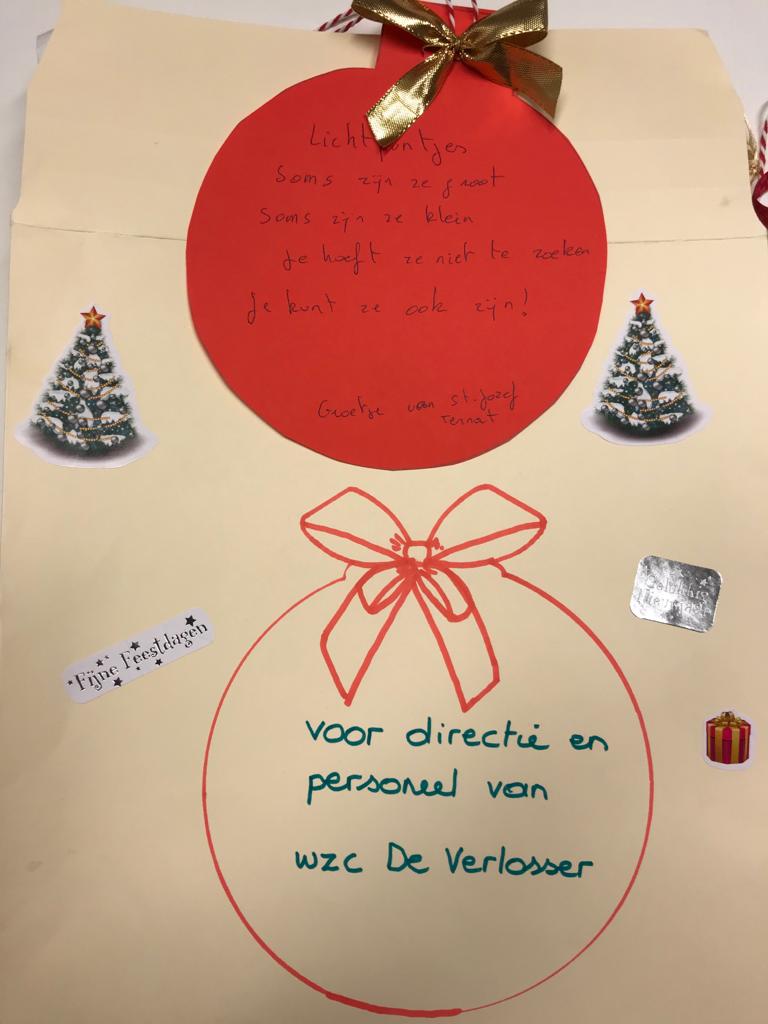 Lichtpuntjes
Soms zijn ze groot
Soms zijn ze klein
Je hoeft ze niet te zoeken
Je kunt ze ook zijn!
Groetje van St. Jozef
Ternat
Fijne Feestdagen
Gelukkig
Nieuwjaar
voor directie en
personeel van
wzc De Verlosser